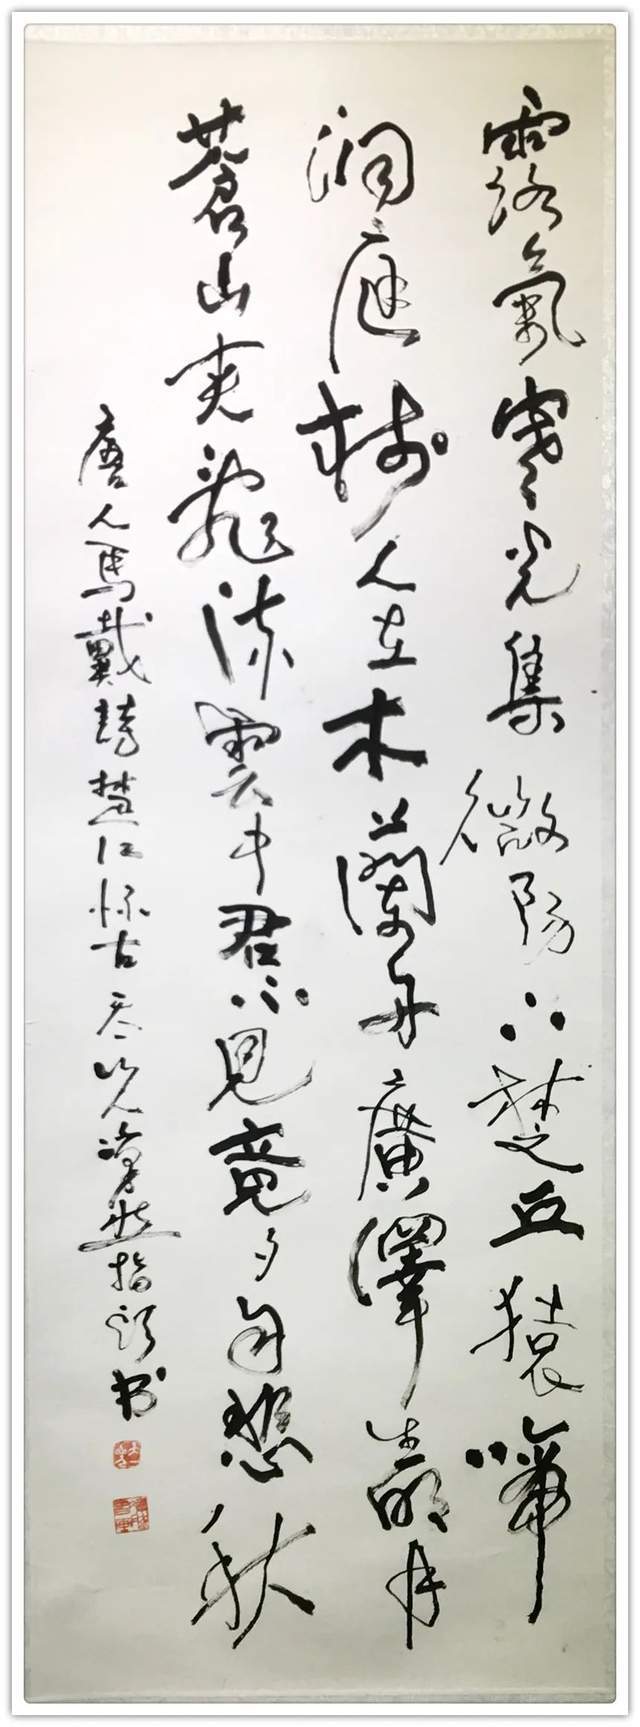 露氣寒光集微陽下楚丘猿啼
洞庭樹人在木蘭舟廣澤生明月
蒼山夾亂流雲中君不見竟夕自悲秋
唐人馬戴詩楚江怀古指頭书